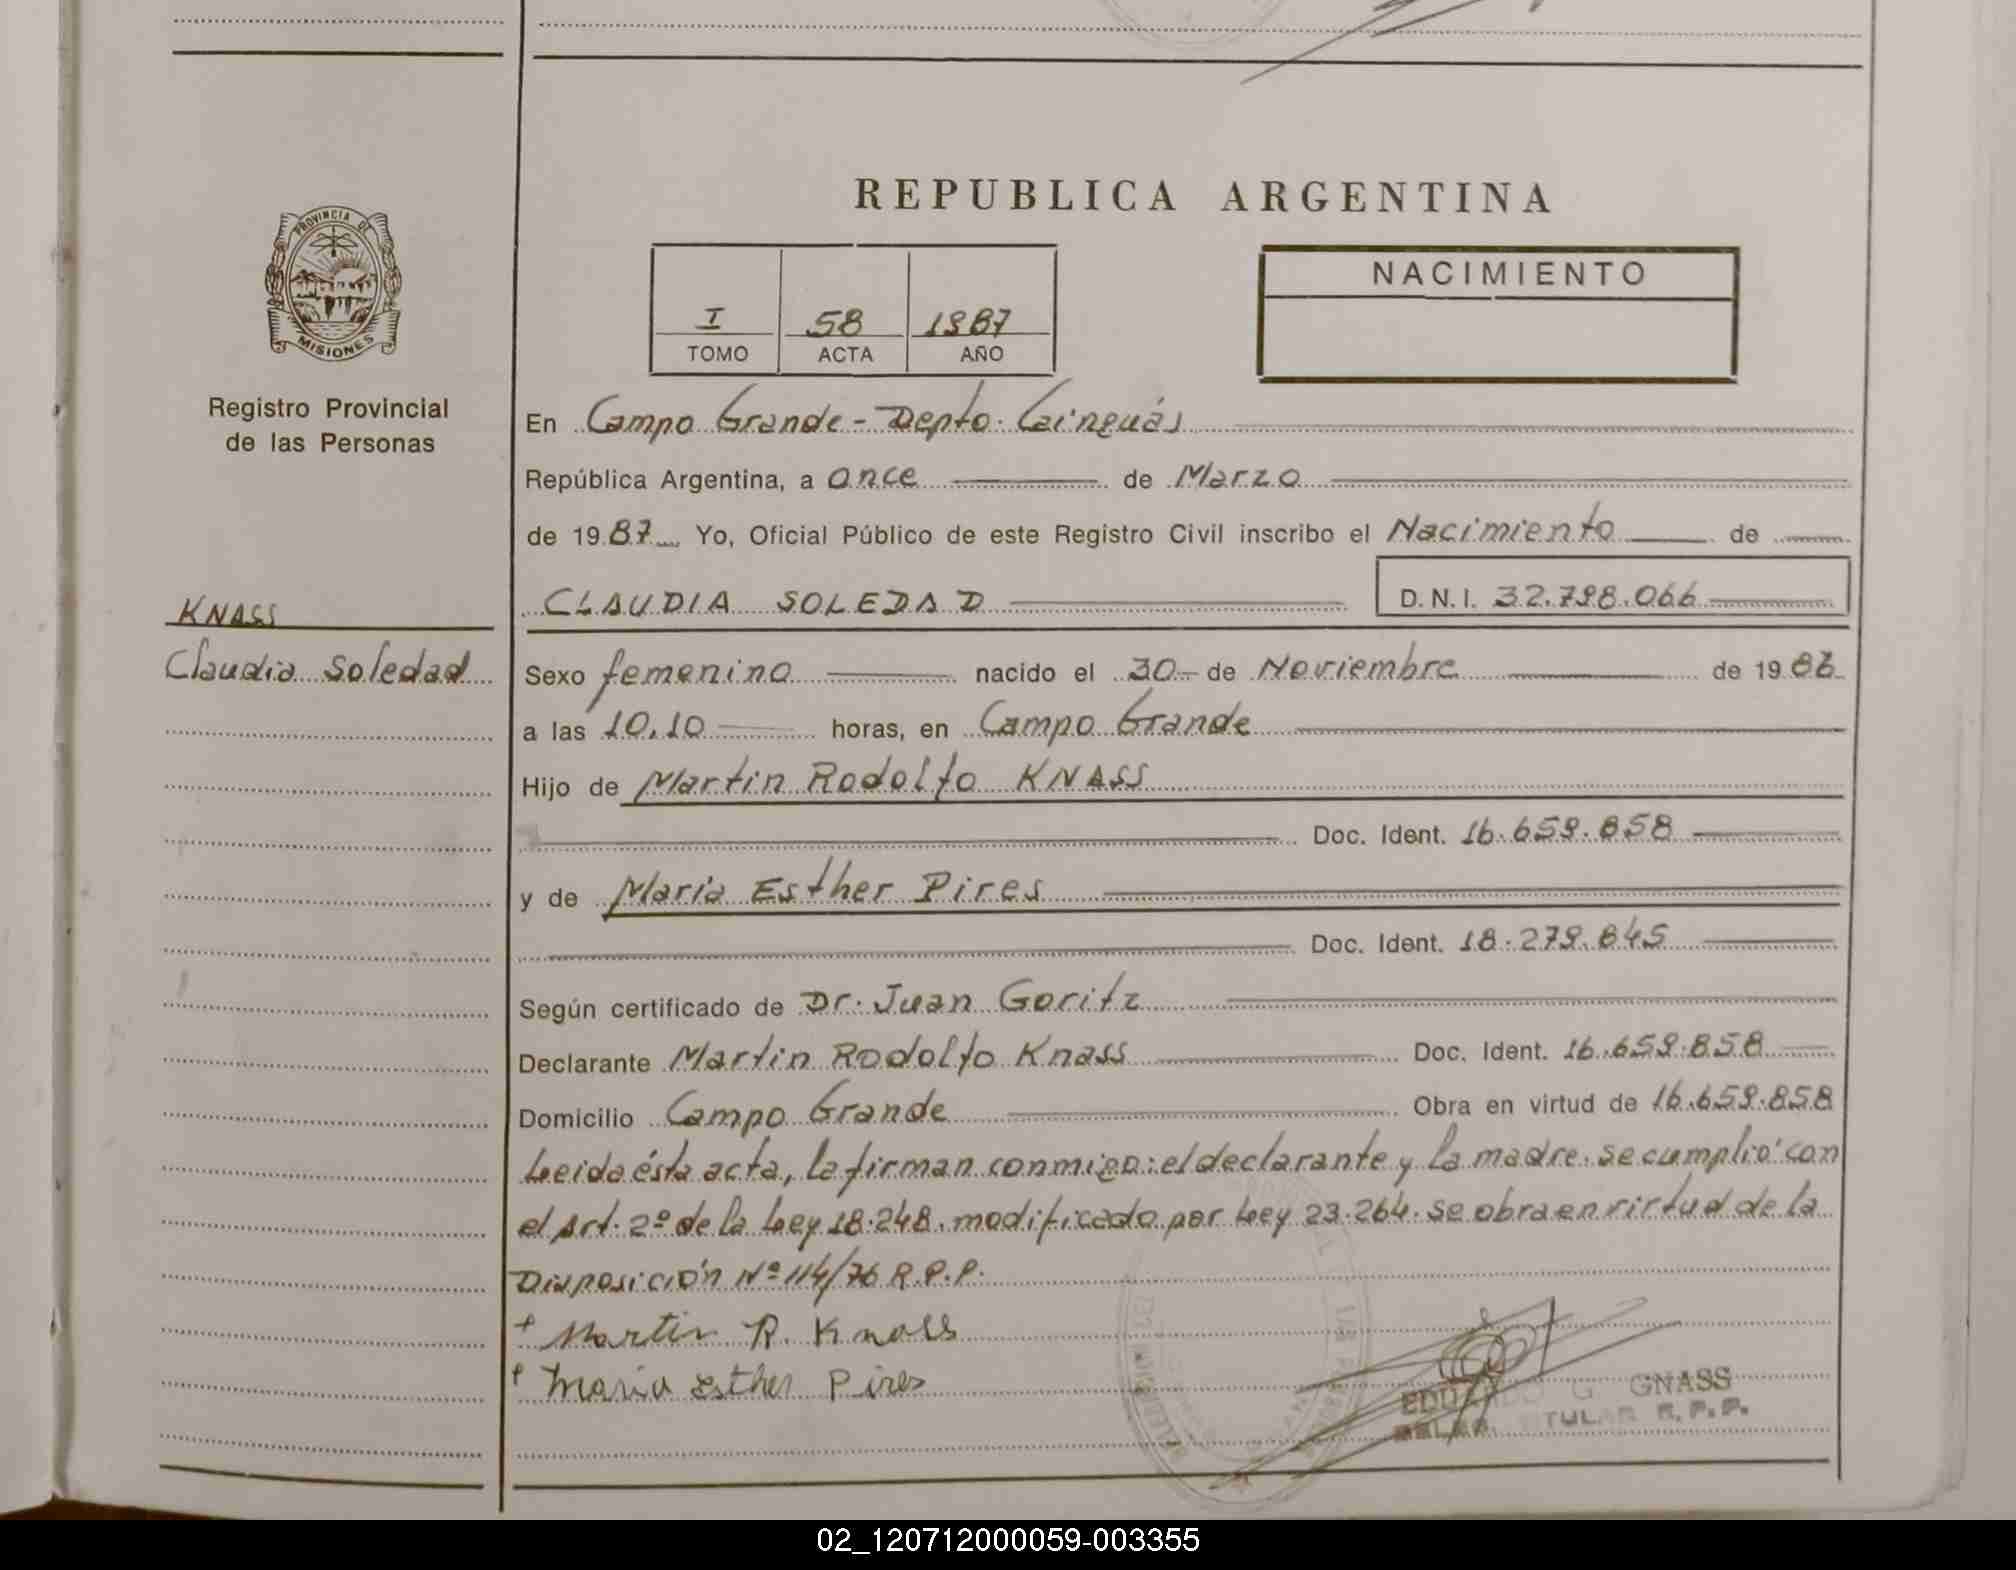 REPUBLICA ARGENTINA
PROVINCIA DE
MISIONES
Registro Provincial
de las Personas
KNASS
Claudia Soledad
I 58 1987
TOMO ACTA AÑO
NACIMIENTO
En Campo Grande - Depto. Cainguás
República Argentina, a once de Marzo
de 1987 Yo, Oficial Público de este Registro Civil inscribo el Nacimiento de
CLAUDIA SOLEDAD D.N.I. 32.798.066
Sexo femenino nacido el 30 - de Noviembre de 1986
a las 10,10 horas, en Campo Grande
Hijo de Martin Rodolfo KNASS
Doc. Ident. 16.659.858
y de María Esther Pires
Doc. Ident. 18.279.845
Según certificado de Dr. Juan Goritz
Declarante Martin Rodolfo Knass Doc. Ident. 16.659.858
Domicilio Campo Grande Obra en virtud de 16.659.858
Leida ésta acta, la firman conmigo: el declarante y la madre. se cumplió con
el Art. 2º de la Ley 18.248. modificado por Ley 23.264. se obra en virtud de la
Disposición Nº 114/76 R.P.P.
+ Martin R. Knass
+ Maria Esther Pires
EDUARDO G. GNASS
TITULAR R.P.P.
02_120712000059-003355